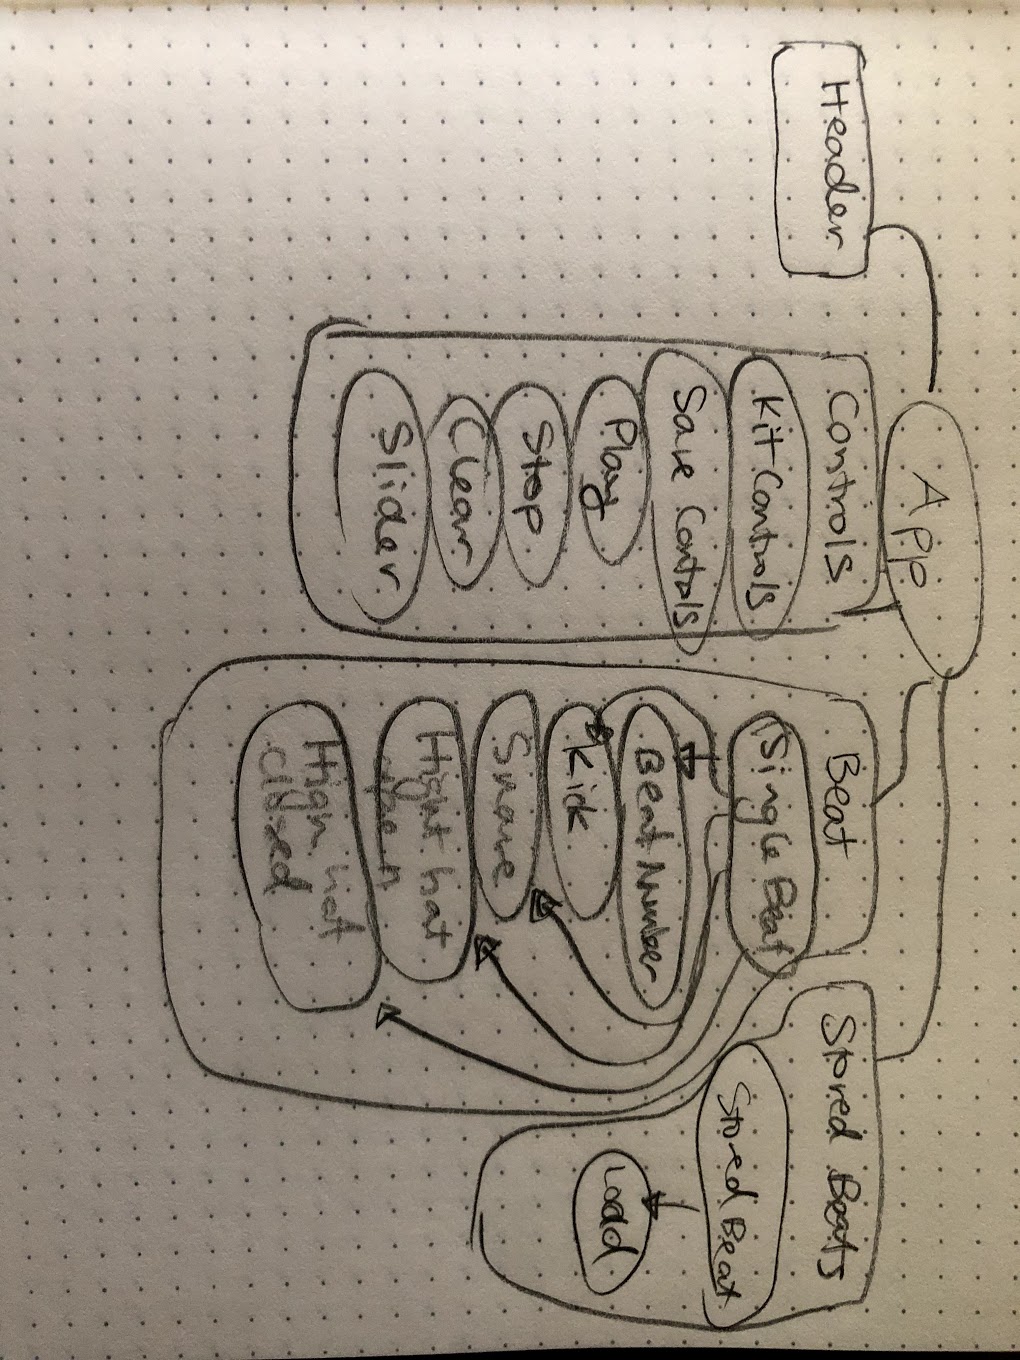 App
Header
Controls
Kit Controls
Save Contols
Play
Stop
Clear
Slider
Beat
Single Beat
Beat Number
Kick
Snare
Hight hat
open
High hat
closed
Stored Beats
Stored Beat
Load